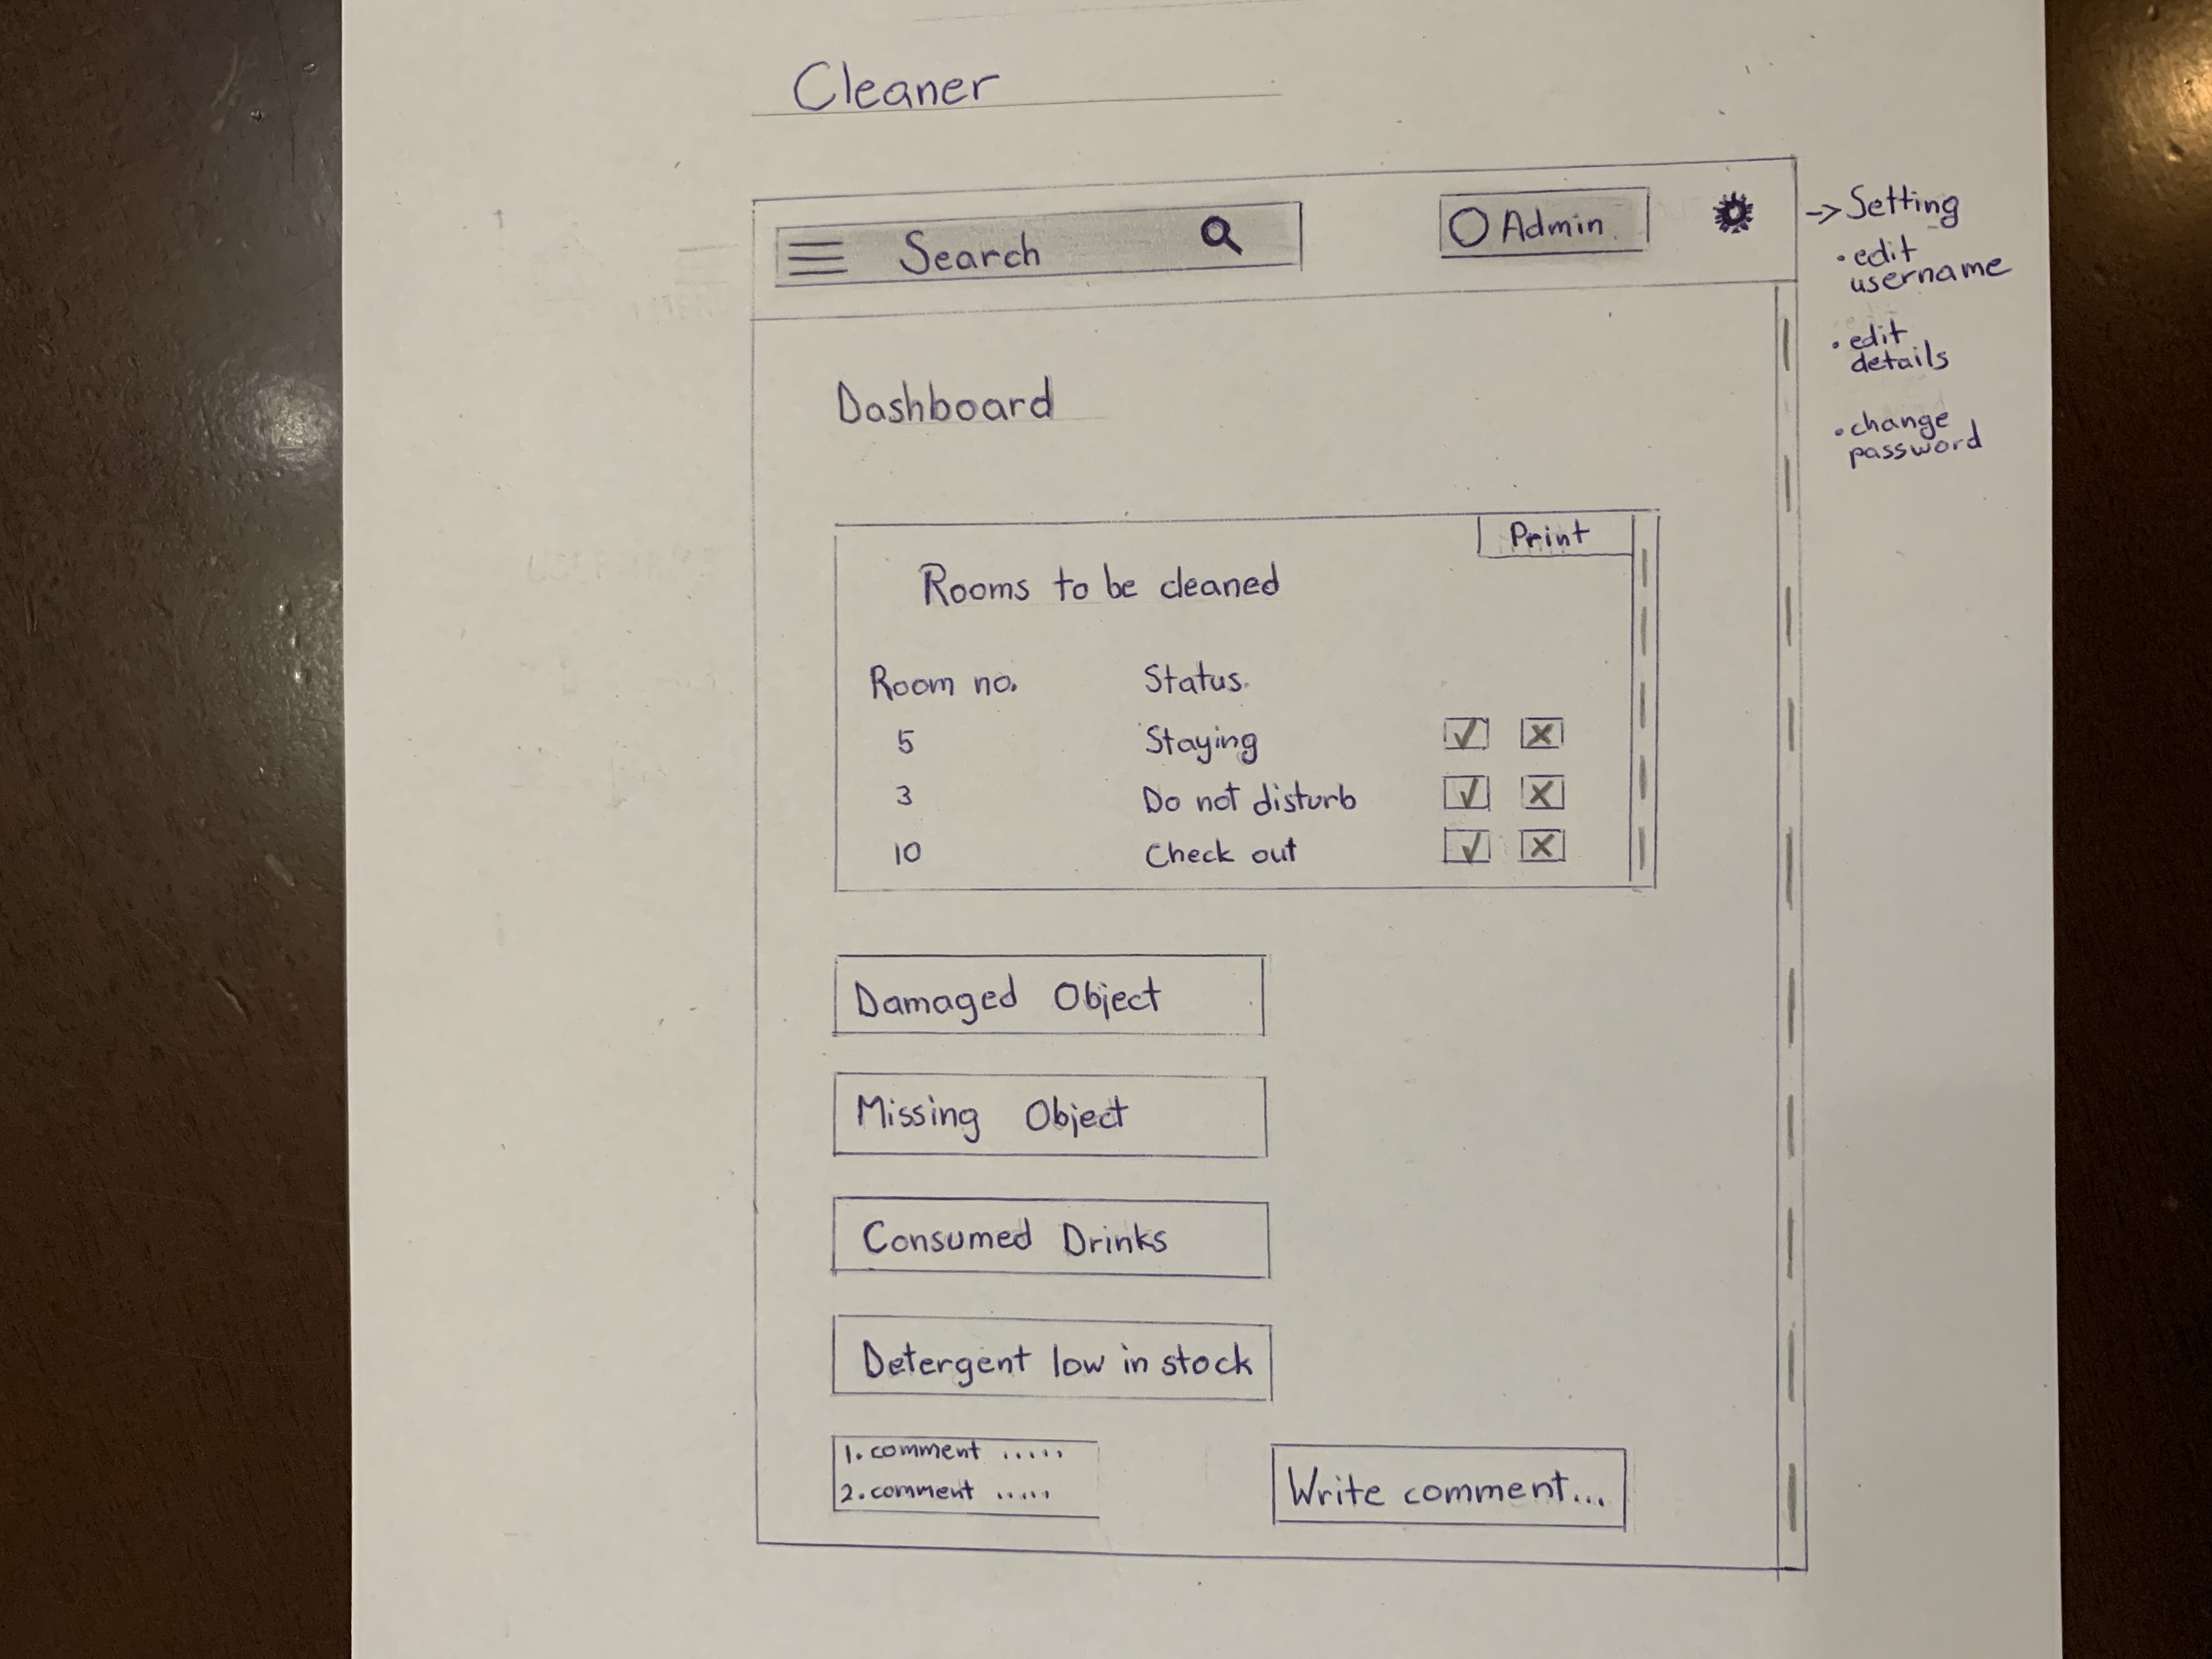 Cleaner
Search
Admin
-> Setting
• edit
username
• edit
details
• change
password
Dashboard
Print
Rooms to be cleaned
Room no. Status
5 Staying
3 Do not disturb
10 Check out
Damaged Object
Missing Object
Consumed Drinks
Detergent low in stock
1. comment .....
2. comment .....
Write comment...